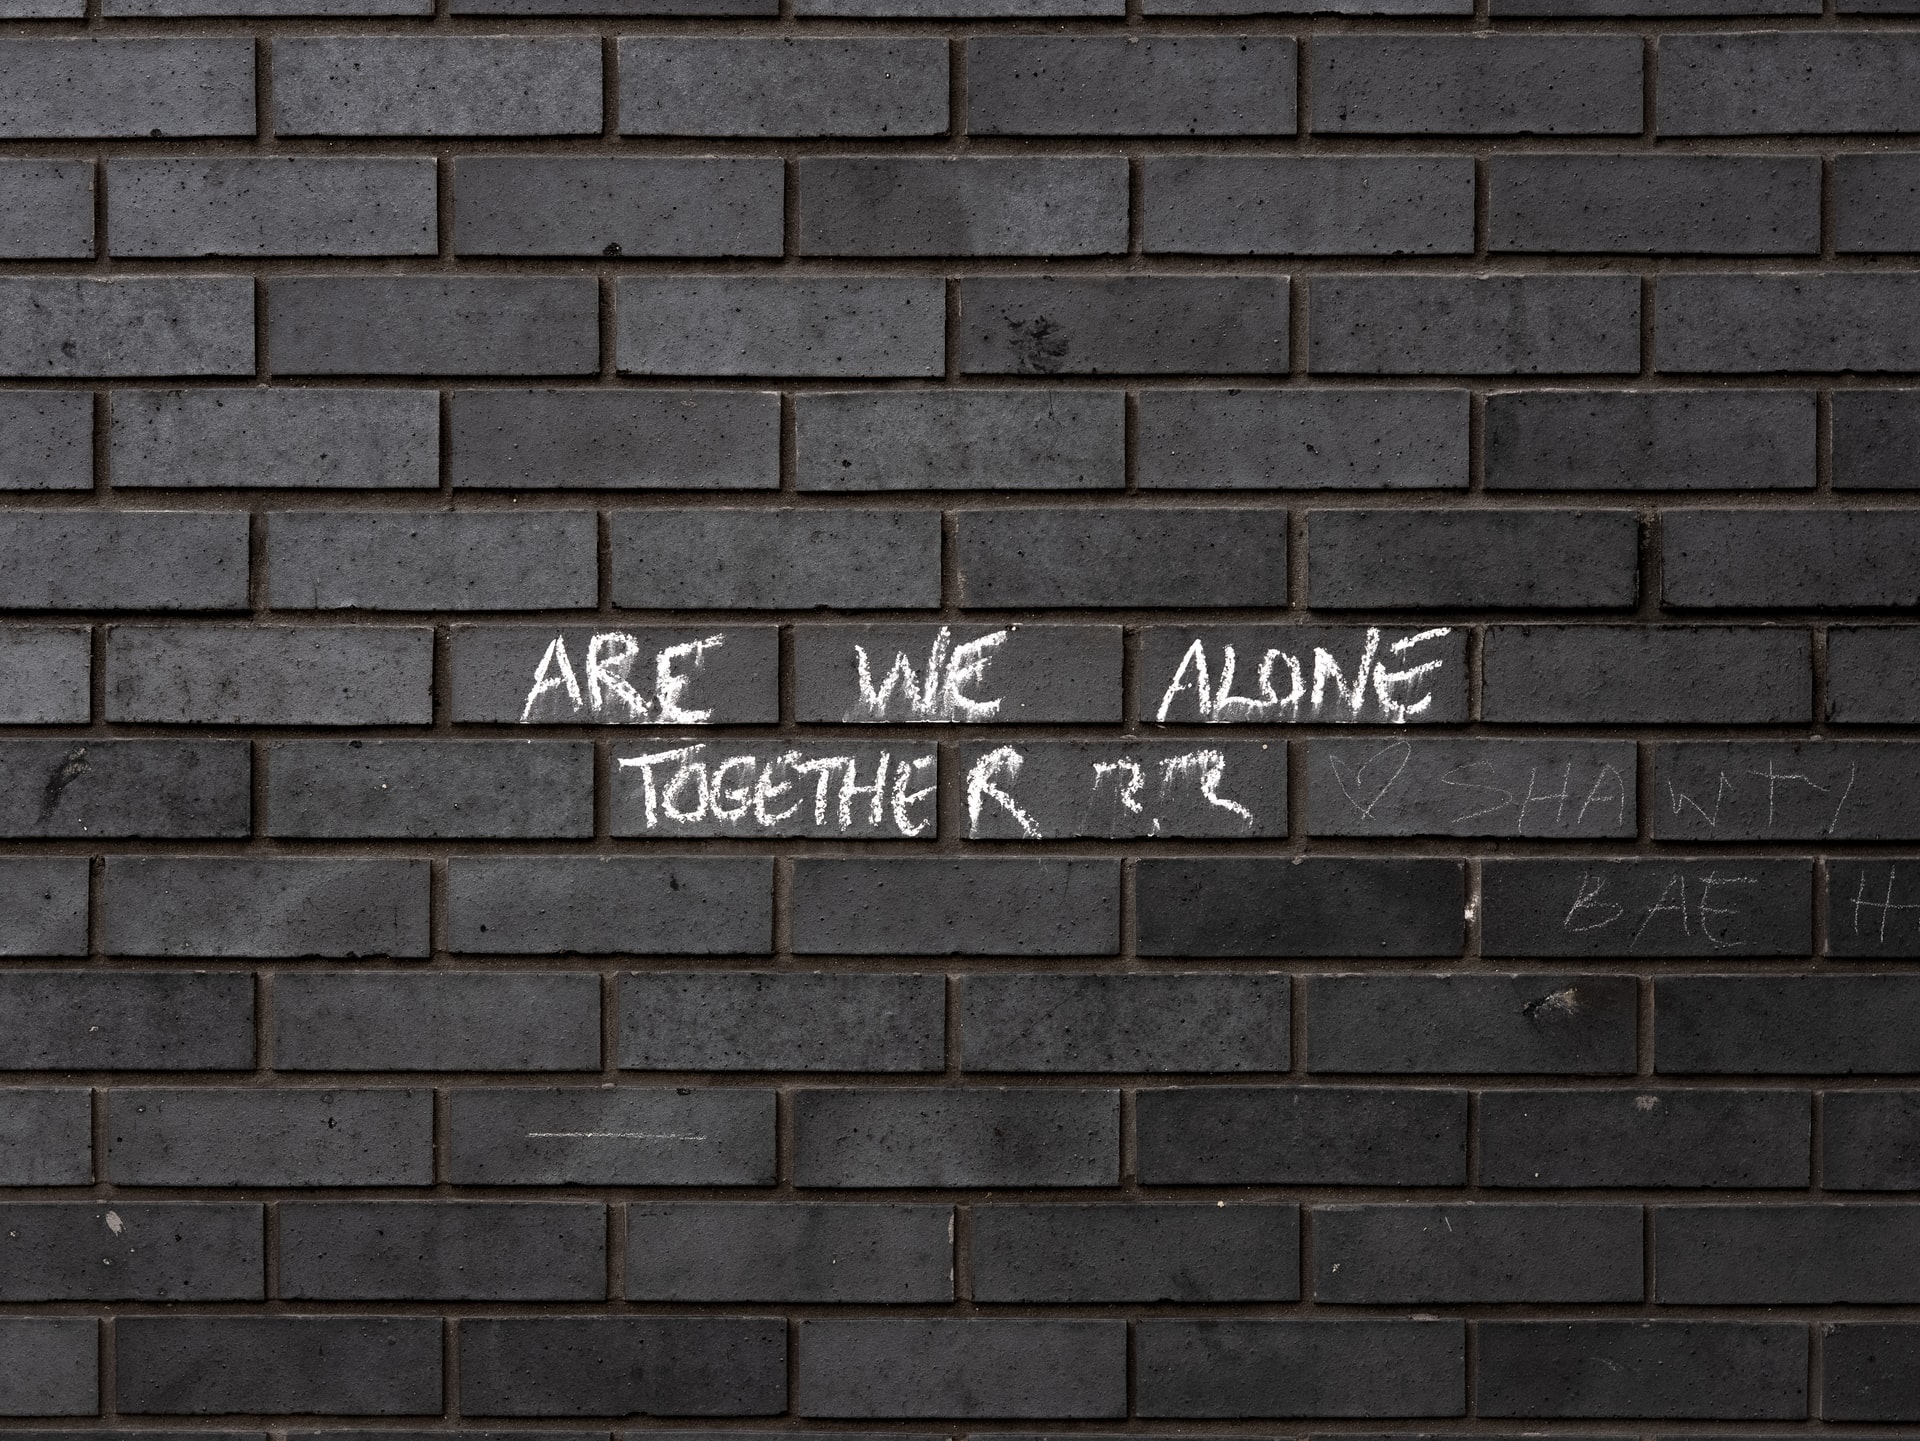 ARE WE ALONE
TOGETHER ??
♡ SHAWTY
BAE H